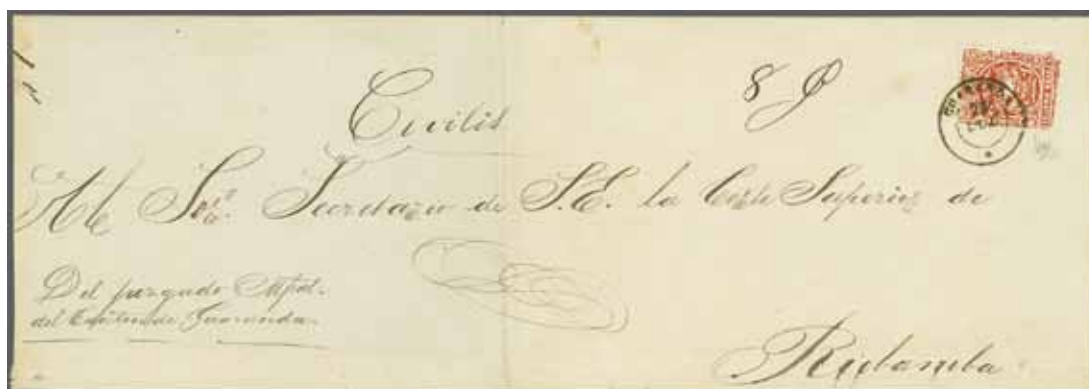 8 P
Civilis
Al Sor. Secretario de S.E. la Corte Superior de
Del juzgado Mpal.
del Canton de Guaranda
Riobamba